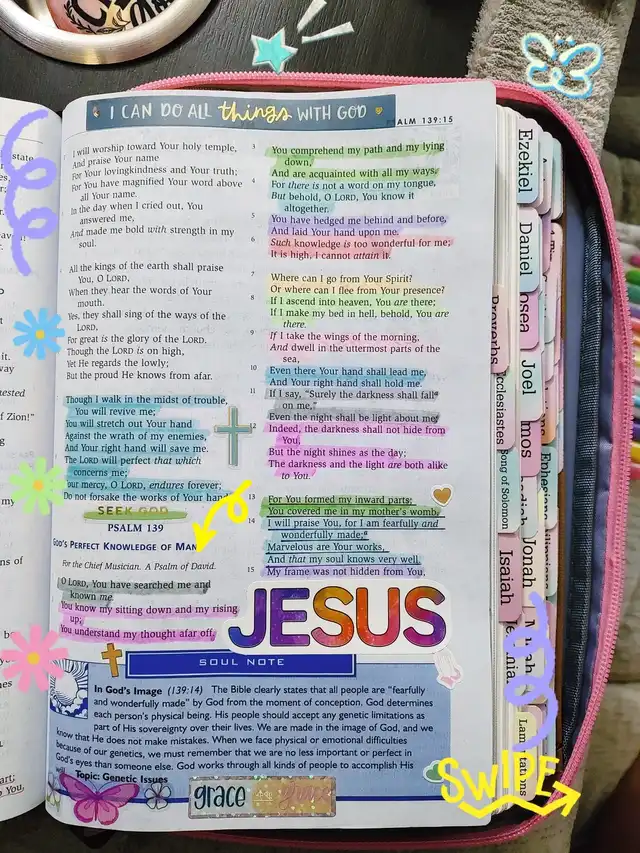 I CAN DO ALL things WITH GOD
PSALM 139:15
I will worship toward Your holy temple,
And praise Your name
For Your lovingkindness and Your truth;
For You have magnified Your word above
all Your name.
In the day when I cried out, You
answered me,
And made me bold with strength in my
soul.
All the kings of the earth shall praise
You, O LORD,
When they hear the words of Your
mouth.
Yes, they shall sing of the ways of the
LORD,
For great is the glory of the LORD.
Though the LORD is on high,
Yet He regards the lowly;
But the proud He knows from afar.
Though I walk in the midst of trouble,
You will revive me;
You will stretch out Your hand
Against the wrath of my enemies,
And Your right hand will save me.
The LORD will perfect that which
concerns me;
Your mercy, O LORD, endures forever;
Do not forsake the works of Your hand
SEEK GOD
PSALM 139
GOD'S PERFECT KNOWLEDGE OF MAN
For the Chief Musician. A Psalm of David.
O LORD, You have searched me and
known me.
You know my sitting down and my rising
up;
You understand my thought afar off.
3 You comprehend my path and my lying
down,
And are acquainted with all my ways.
4 For there is not a word on my tongue,
But behold, O LORD, You know it
altogether.
5 You have hedged me behind and before,
And laid Your hand upon me.
6 Such knowledge is too wonderful for me;
It is high, I cannot attain it.
7 Where can I go from Your Spirit?
Or where can I flee from Your presence?
8 If I ascend into heaven, You are there;
If I make my bed in hell, behold, You are
there.
9 If I take the wings of the morning,
And dwell in the uttermost parts of the
sea,
10 Even there Your hand shall lead me,
And Your right hand shall hold me.
11 If I say, "Surely the darkness shall fall
on me,"
Even the night shall be light about me;
12 Indeed, the darkness shall not hide from
You,
But the night shines as the day;
The darkness and the light are both alike
to You.
13 For You formed my inward parts;
You covered me in my mother's womb.
14 I will praise You, for I am fearfully and
wonderfully made;
Marvelous are Your works,
And that my soul knows very well.
15 My frame was not hidden from You,
JESUS
SOUL NOTE
In God's Image (139:14) The Bible clearly states that all people are "fearfully
and wonderfully made" by God from the moment of conception. God determines
each person's physical being. His people should accept any genetic limitations as
part of His sovereignty over their lives. We are made in the image of God, and we
know that He does not make mistakes. When we face physical or emotional difficulties
because of our genetics, we must remember that we are no less important or perfect in
God's eyes than someone else. God works through all kinds of people to accomplish His
will. Topic: Genetic Issues
grace grace
SWIPE
Ezekiel
Daniel
osea
Joel
mos
Jonah
Proverbs
Ecclesiastes
Song of Solomon
Isaiah
Ephesians
state
of Zion!"